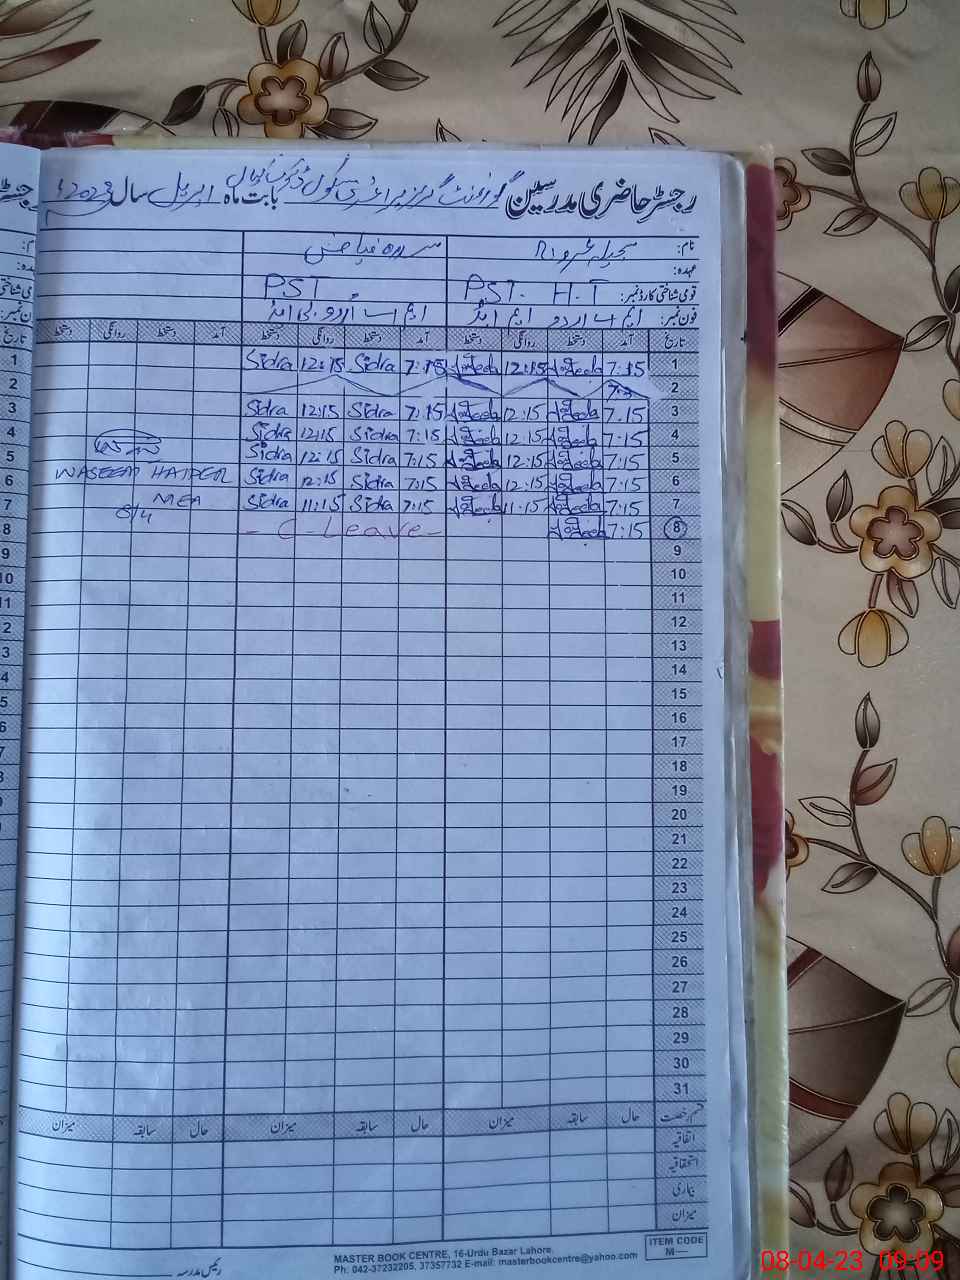 رجسٹر حاضری مدرسین گورنمنٹ گرلز پرائمری سکول بابت ماہ اپریل سال 2023ء
نام:
عہدہ:
PST. H.T PST
قومی شناختی کارڈ نمبر:
فون نمبر: ایم اے اردو ایم ایڈ ایم اے اردو بی ایڈ
تاریخ آمد دستخط روانگی دستخط آمد دستخط روانگی دستخط آمد دستخط روانگی دستخط
1 7:15 12:15 7:15 Sidra 12:15 Sidra
2
3 7.15 12:15 7:15 Sidra 12:15 Sidra
4 7:15 12:15 7:15 Sidra 12:15 Sidra
5 7:15 12:15 7:15 Sidra 12:15 Sidra
6 7:15 12:15 7:15 Sidra 12:15 Sidra WASEEM HAIDER
7 7:15 11:15 7:15 Sidra 11:15 Sidra MEA
8 7:15 - C Leave - 8/4
9
10
11
12
13
14
15
16
17
18
19
20
21
22
23
24
25
26
27
28
29
30
31
قسم رخصت حال سابقہ میزان حال سابقہ میزان حال سابقہ میزان
اتفاقیہ
استحقاقیہ
بیماری
میزان
رئیس مدرسہ
MASTER BOOK CENTRE, 16-Urdu Bazar Lahore.
Ph: 042-37232205, 37357732 E-mail: masterbookcentre@yahoo.com
ITEM CODE
M—
08-04-23 09:09